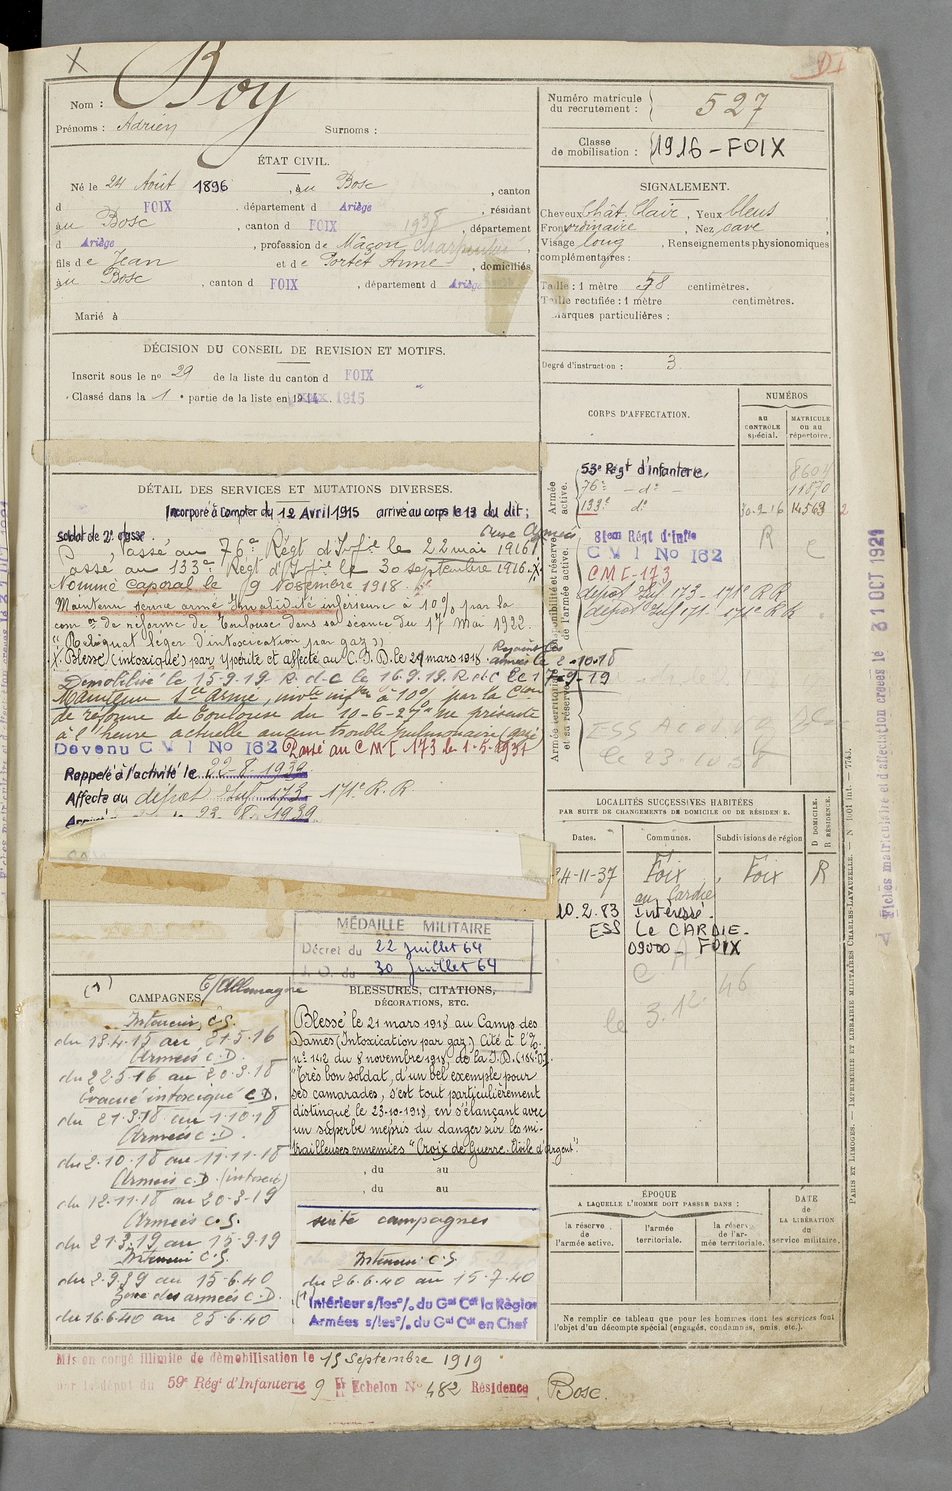 X
D I
Nom : Boy
Prénoms : Adrien Surnoms :
ÉTAT CIVIL.
Né le 24 Août 1896, au Bosc, canton
d FOIX, département d Ariège, résidant
au Bosc, canton d FOIX 1938, département
d Ariège, profession de Maçon charpentier,
fils de Jean et de Portet Anne, domiciliés
au Bosc, canton d FOIX, département d Ariège
Marié à
DÉCISION DU CONSEIL DE REVISION ET MOTIFS.
Inscrit sous le no 29 de la liste du canton d FOIX
Classé dans la 1 e partie de la liste en 1915
Numéro matricule du recrutement : 527
Classe de mobilisation : 1916 - FOIX
SIGNALEMENT.
Cheveux Chât. Clair, Yeux bleus
Front ordinaire, Nez cave
Visage long, Renseignements physionomiques
complémentaires :
Taille : 1 mètre 58 centimètres.
Taille rectifiée : 1 mètre centimètres.
Marques particulières :
Degré d'instruction : 3
CORPS D'AFFECTATION.
NUMÉROS
AU CONTRÔLE spécial.
MATRICULE OU AU répertoire.
Armée active.
53e Régt d'infanterie 8604
76e - do - 11870
133e do 30-9-16 14563
81em Régt d'Inftie R
C V I No 162
CMI-173
dépôt Inf 173 - 171e R R
dépôt Inf 171 - 171e R R
Disponibilité et réserve de l'armée active.
Armée territoriale et sa réserve.
le 23.10.38
DÉTAIL DES SERVICES ET MUTATIONS DIVERSES.
Incorporé à compter du 12 Avril 1915 arrivé au corps le 13 du dit;
soldat de 2e classe
Passé au 76e Régt d'Inf.ie le 22 mai 1916
Passé au 133e Régt d'Inf.ie le 30 septembre 1916. X
Nommé caporal le 9 Novembre 1918.
Maintenu service armé Invalidité inférieure à 10% par la
com on de réforme de Toulouse dans sa séance du 17 Mai 1922.
" Reliquat léger d'intoxication par gaz "
X. Blessé (intoxiqué) par ypérite et affecté au C.I.D. le 21 mars 1918. Rejoint les armées le 2-10-18
Démobilisé le 15.9.19 R.d.c le 16.9.19. R d c le 17-9-19
Maintenu sce armé, invté infre à 10% par la Cion
de réforme de Toulouse du 10-6-27 "ne présente
à l'heure actuelle aucun trouble pulmonaire (gazé
Devenu C V I No 162 Passé au CMI 173 le 1-5-1931
Rappelé à l'activité le 22-8-1939
Affecté au dépôt Inf 173 - 171e R.R.
LOCALITÉS SUCCESSIVES HABITÉES
PAR SUITE DE CHANGEMENTS DE DOMICILE OU DE RÉSIDENCE.
Dates. Communes. Subdivisions de région
D. DOMICILE. R. RÉSIDENCE.
24-11-37 Foix, Foix R
au Cardié
10.2.83 Intéressé.
ESS Le CARDIE-
09000 - FOIX
le 3.12.46
MÉDAILLE MILITAIRE
Décret du 22 Juillet 64
J. O. du 30 Juillet 64
(1)
CAMPAGNES C/Allemagne
Intérieur, C.S.
du 13.4.15 au 21.5.16
Armées C.D.
du 22.5.16 au 20.3.18
Evacué intoxiqué C.D.
du 21.3.18 au 1.10.18
Armées C.D.
du 2.10.18 au 11.11.18
Armées C.D (intoxié)
du 12.11.18 au 20-3-19
Armées C.S.
du 21.3.19 au 15-9-19
Intérieur C.S.
du 2-9-39 au 15.6.40
Zone des armées C.D.
du 16.6.40 au 25.6.40
BLESSURES, CITATIONS,
DÉCORATIONS, ETC.
Blessé le 21 mars 1918 au Camp des
Dames (Intoxication par gaz). Cité à l'O.
no 142 du 8 novembre 1918, de la I.D.
"Très bon soldat, d'un bel exemple pour
ses camarades, s'est tout particulièrement
distingué le 23-10-1918, en s'élançant avec
un superbe mépris du danger sur les mi-
trailleuses ennemies" Croix de Guerre. Etoile d'argent".
, du au
, du au
suite campagnes
Intérieur C.S.
du 26.6.40 au 15.7.40
(1)
Intérieur s/les o/. du Gal Cdt la Région
Armées s/les o/. du Gal Cdt en Chef
ÉPOQUE
A LAQUELLE L'HOMME DOIT PASSER DANS :
la réserve de l'armée active.
l'armée territoriale.
la réserve de l'armée territoriale.
DATE de LA LIBÉRATION du service militaire.
Ne remplir ce tableau que pour les hommes dont les services font
l'objet d'un décompte spécial (engagés, condamnés, omis, etc.).
Mis en congé illimité de démobilisation le 15 Septembre 1919
par le dépôt du 59e Régt d'Infanterie 9 e Echelon No 482 Résidence, Bosc.
PARIS ET LIMOGES. — IMPRIMERIE ET LIBRAIRIE MILITAIRES CHARLES-LAVAUZELLE. — N° 1001 int. — 7743.
Fiches matriculaire et d'affectation créées le 31 OCT 1921